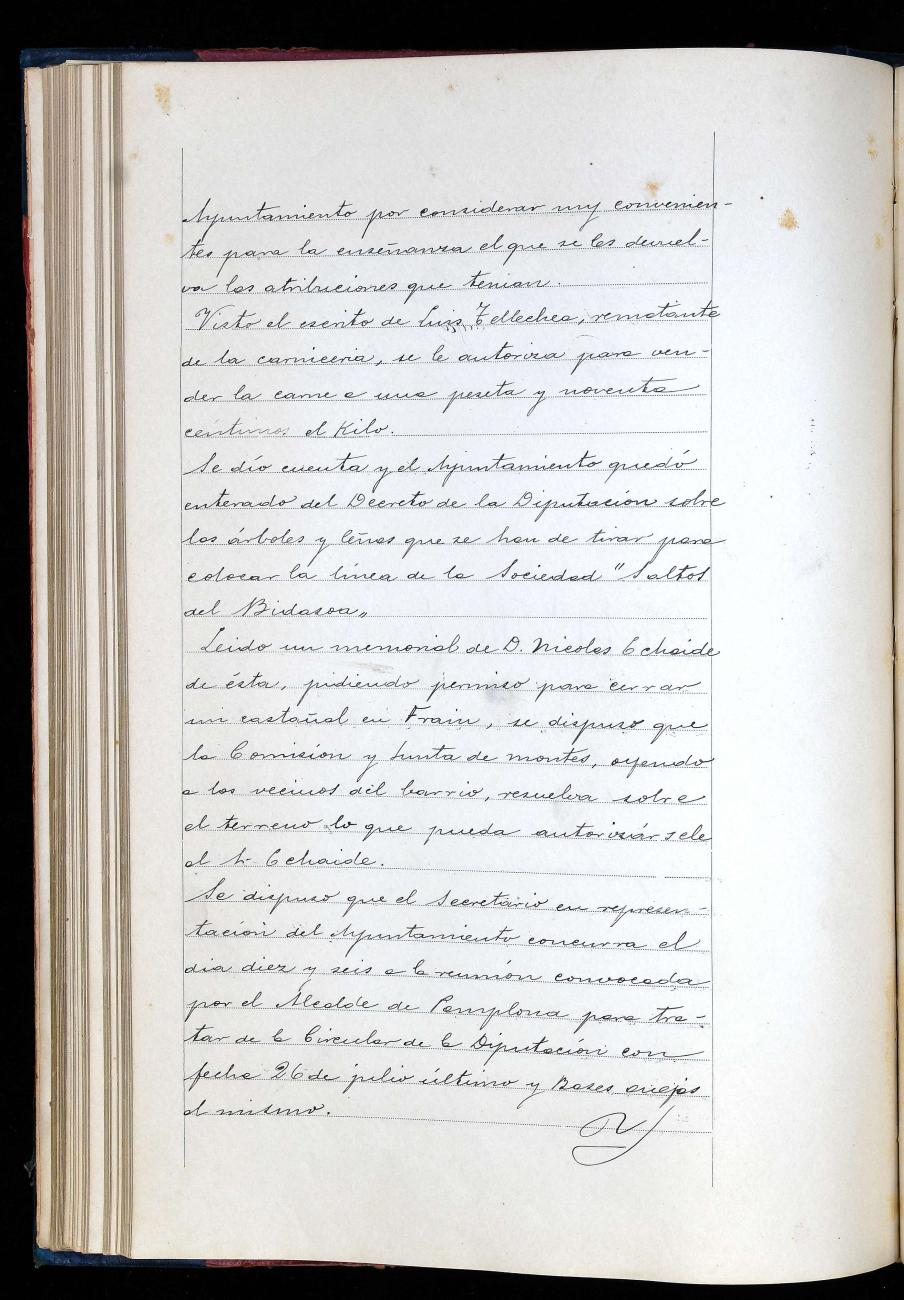 Ayuntamiento por considerar muy convenien-
tes para la enseñanza el que se les devuel-
va las atribuciones que tenian.
Visto el escrito de Luis Tellechea, rematante
de la carniceria, se le autoriza para ven-
der la carne a una peseta y noventa
centimos el Kilo.
Se dío cuenta y el Ayuntamiento quedó
enterado del Decreto de la Diputación sobre
los árboles y leñas que se han de tirar para
colocar la línea de la Sociedad "Saltos
del Bidasoa"
Leido un memorial de D. Nicolas Echaide
de ésta, pidiendo permiso para cerrar
un castañal en Frain, se dispuso que
la Comisión y Junta de montes, oyendo
a los vecinos del barrio, resuelva sobre
el terreno lo que pueda autorizársele
al Sr Echaide.
Se dispuso que el Secretário en represen-
tación del Ayuntamiento concurra el
dia diez y seis a la reunión convocada
por el Alcalde de Pamplona para tra-
tar de la Circular de la Diputación con
fecha 26 de julio último y Bases anejas
al mismo.